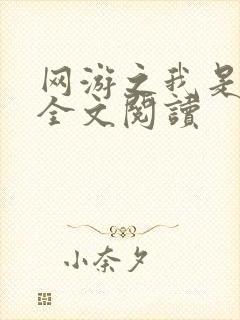 网游之我是
全文阅讀
小奈夕